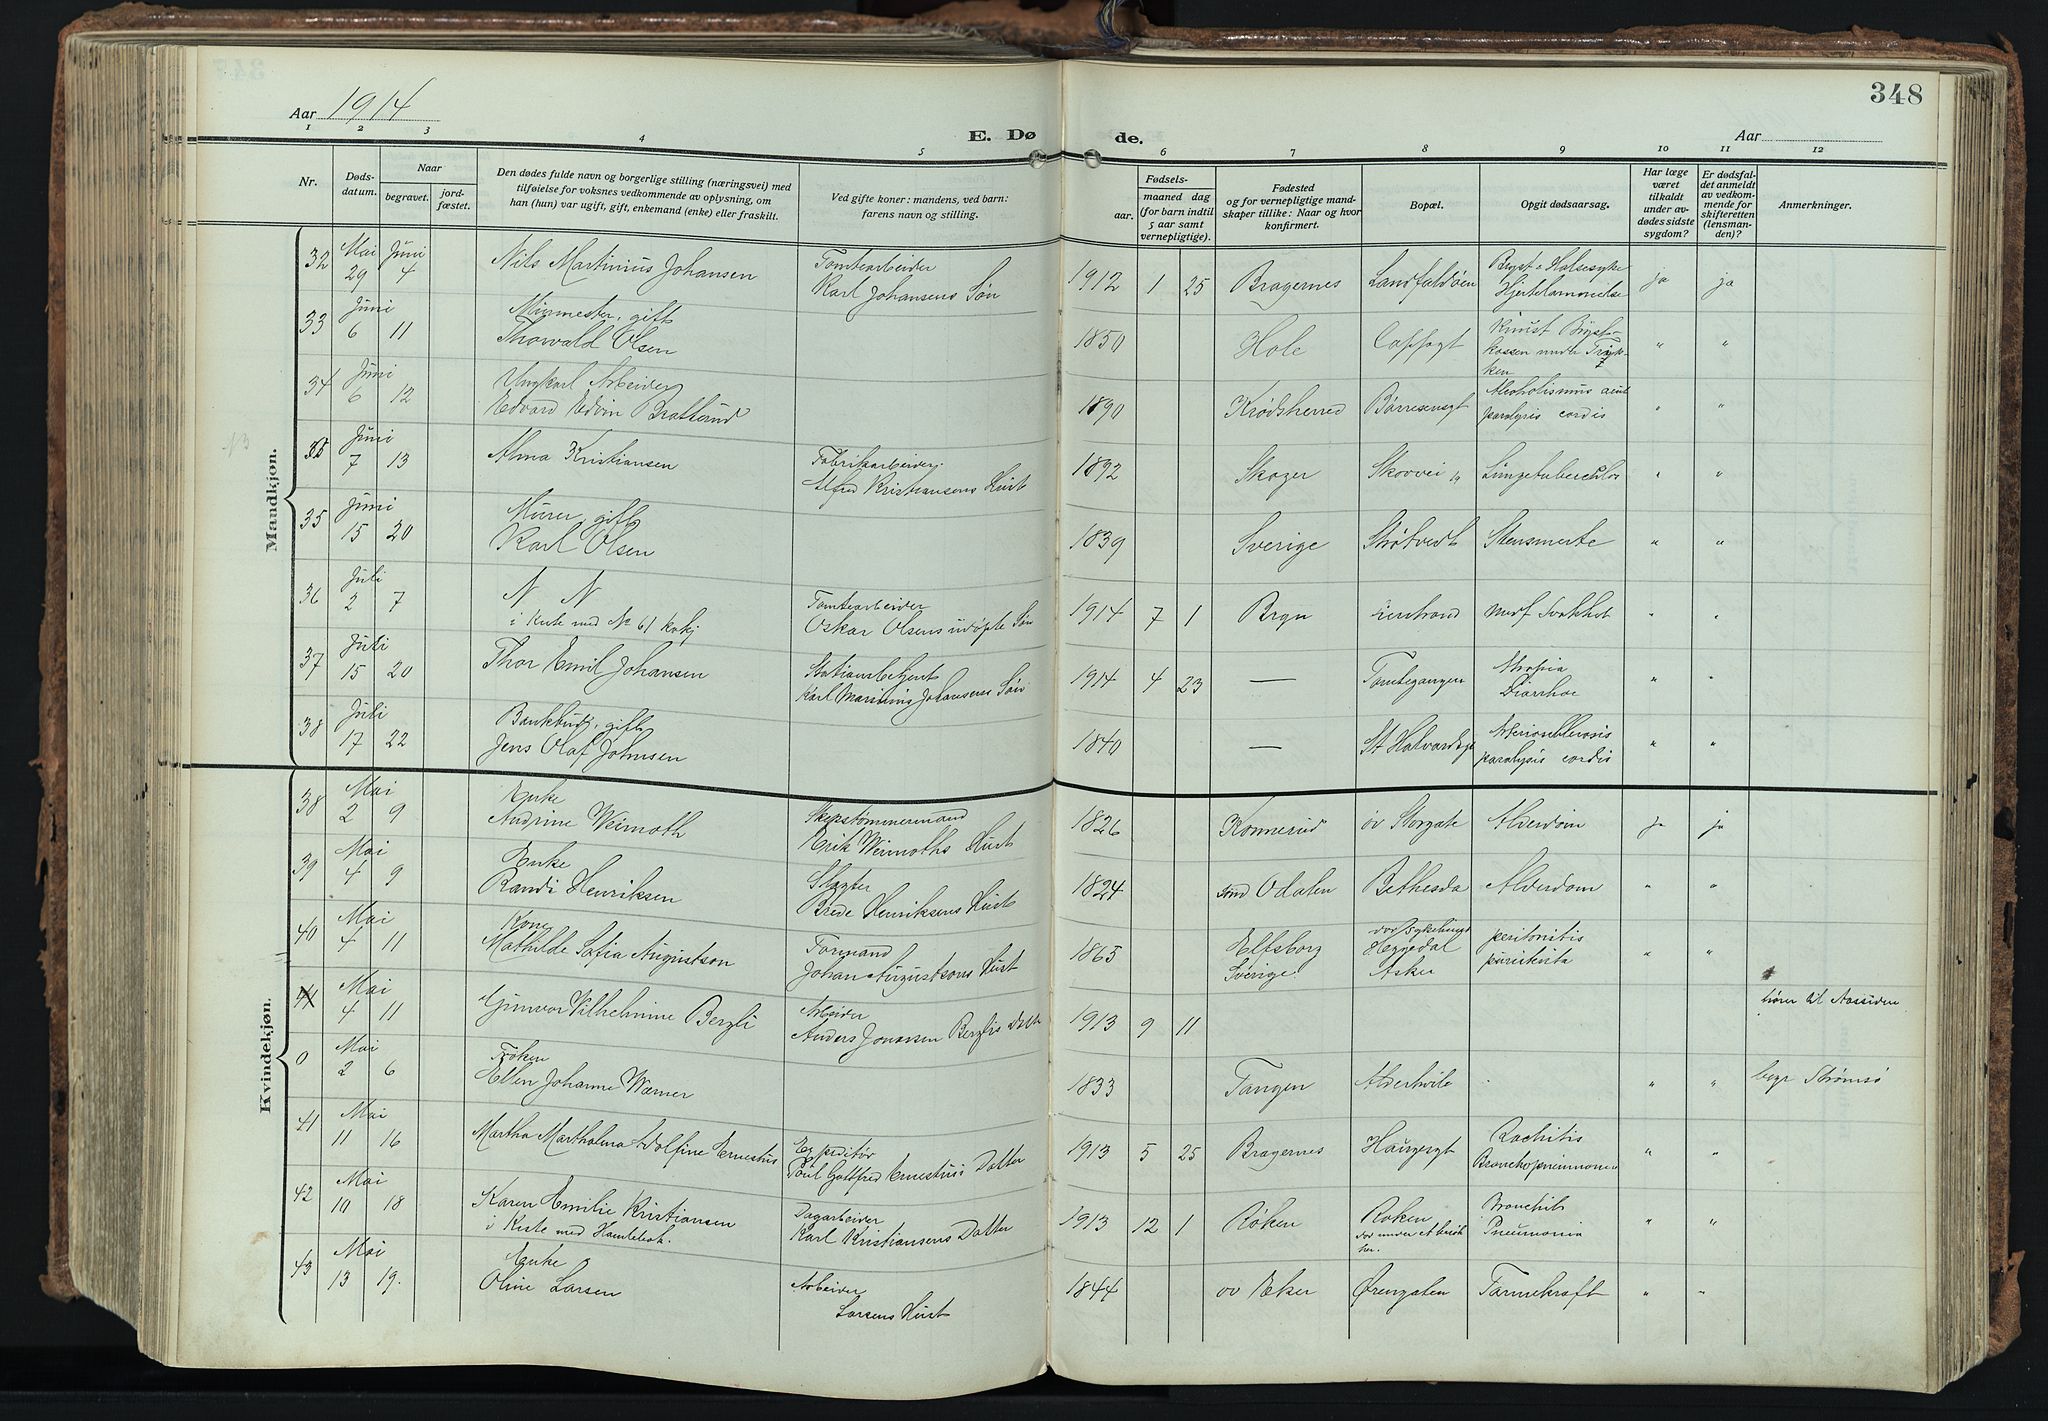 348
Aar 1914
E. Dø de.
Aar
1 2 3 4 5 6 7 8 9 10 11 12
Nr.
Dødsdatum.
Naar
begravet.
jordfæstet.
Den dødes fulde navn og borgerlige stilling (næringsvei) med
tilføielse for voksnes vedkommende av oplysning, om
han (hun) var ugift, gift, enkemand (enke) eller fraskilt.
Ved gifte koner: mandens, ved barn:
farens navn og stilling.
Fødsels-
aar.
maaned dag
(for barn indtil
5 aar samt
vernepligtige).
Fødested
og for vernepligtige mand-
skaper tillike: Naar og hvor
konfirmert.
Bopæl.
Opgit dødsaarsag.
Har læge
været
tilkaldt
under av-
dødes sidste
sygdom?
Er dødsfal-
det anmeldt
av vedkom-
mende for
skifteretten
(lensman-
den)?
Anmerkninger.
Mandkjøn.
32 Mai 29 Juni 4 Nils Martinius Johansen Tomtearbeider Karl Johansens Søn 1912 1 25 Bragernes Landfaldøen Bryst o Halsesyke ja ja
33 Juni 6 11 Murmester, gift Thorvald Olsen 1850 Hole Cappsgt Knust Brystkassen under " "
34 Juni 6 12 Ungkarl Arbeider Edvard Edvin Bratterud 1890 Krødsherred Børresensgt Alcoholismus acut paralysis cordis " "
Juni 7 13 Alma Kristiansen Fabrikarbeider Alfred Kristiansens Hust 1892 Skoger Skovvei Lungetuberculos " "
35 Juni 15 20 Murer, gift Karl Olsen 1839 Sverige Strøtvedt Stensmerte " "
36 Juli 2 7 N N i Kiste med No 61 Tomtearbeider Oskar Olsens udøpte Søn 1914 7 1 Bragn medf Svakhet " "
37 Juli 15 20 Thor Emil Johansen Stationsbetjent Karl Marinius Johansens Søn 1914 4 23 — Tomtegangen Atrofia Diarrhoe " "
38 Juli 17 22 Bankbud, gift Jens Olaf Johnsen 1840 — St Halvardsgt paralysis cordis " "
Kvindekjøn.
38 Mai 2 9 Enke Andrine Weimoth Skipstømmermand Erik Weimoths Hust 1826 Konnerud øv Storgate Alderdom ja ja
39 Mai 4 9 Enke Randi Henriksen Slagter Brede Henriksens Hust 1824 Odalen Bethesda Alderdom " "
40 Mai 4 11 Kone Mathilde Sofia Augustson Formand Johan Augustsons Hust 1865 Elfsborg Sverige. Heggedal Asker peritonitis " "
41 Mai 4 11 Gunvor Vilhelmine Bergli Arbeider Anders Jonassen Berglis Datter 1913 9 11 hører til Aassiden
0 Mai 2 6 Frøken Ellen Johanne Wærner 1833 Tangen Alderhvile " " begr Strømsø
41 Mai 11 16 Martha Martholina Adolfine Ernestus Expeditør Poul Gottfred Ernestus' Datter 1913 5 25 Bragernes Haugesgt Rachitis Bronchopneumonia " "
42 Mai 10 18 Karen Emilie Kristiansen i Kiste med Dagarbeider Karl Kristiansens Datter 1913 12 1 Røken Røken død under et besøk her. Bronchit Pneumonia " "
43 Mai 13 19. Enke Oline Larsen Arbeider Larsens Hust 1844 øv Eker Ørengaten Tarmekræft " "